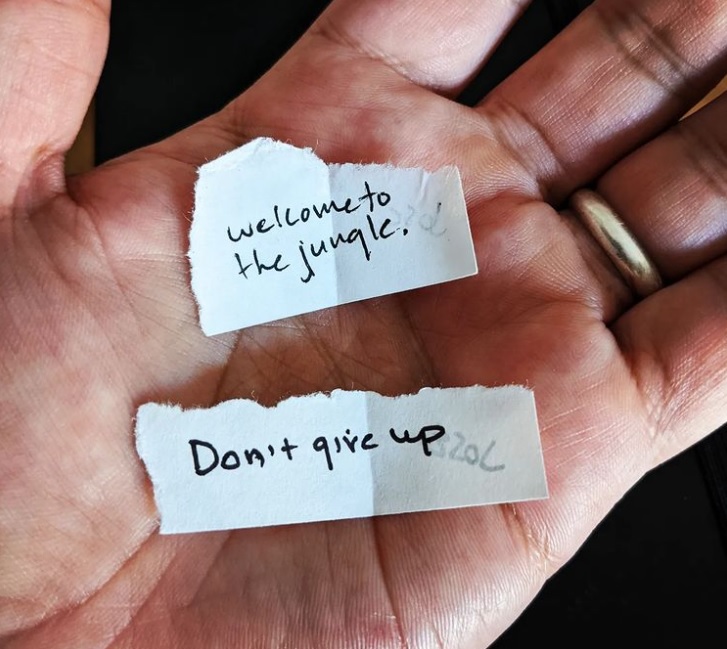 welcome to
the jungle.
Don't give up